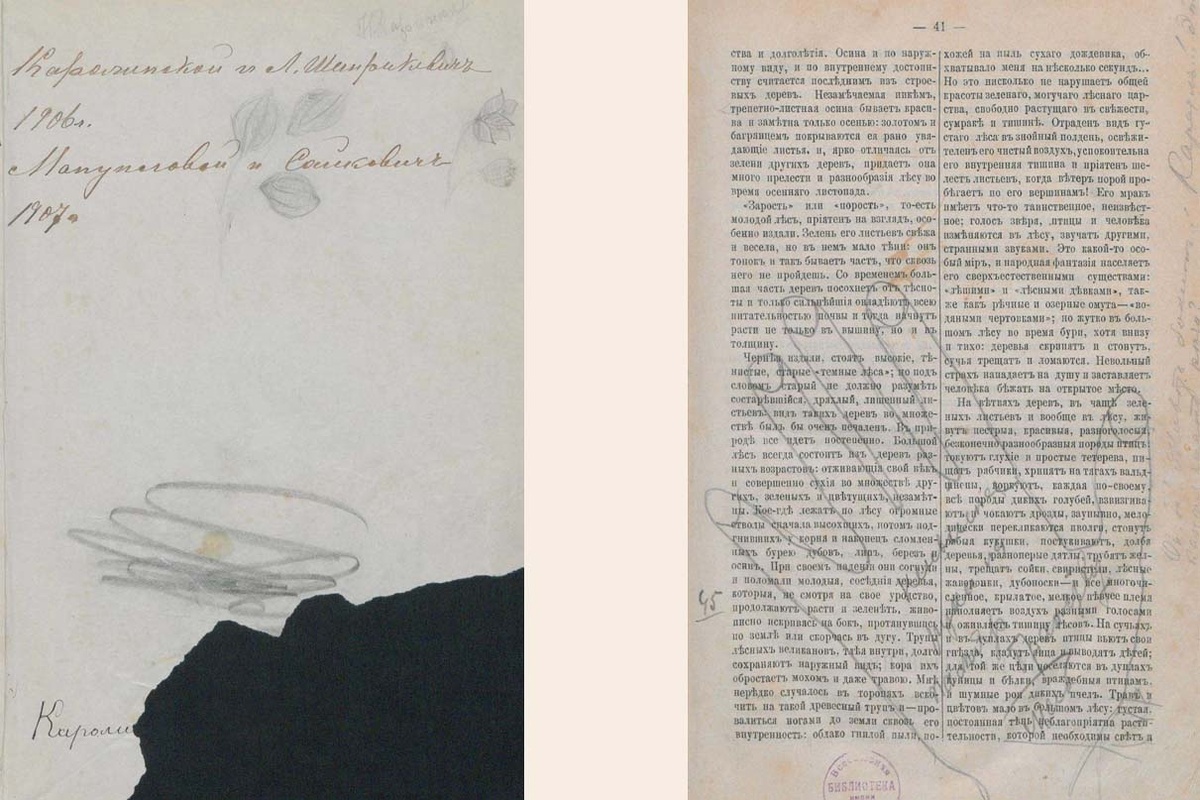 Каролинской и Л. Шапркевичъ
1906г.
и Сашковичъ
1907г
Кароли
— 41 —
ства и долголѣтія. Осина и по наруж-
ному виду, и по внутреннему достоин-
ству считается послѣднимъ изъ строе-
выхъ деревъ. Незамѣчаемая никѣмъ,
трепетно-листная осина бываетъ краси-
ва и замѣтна только осенью: золотомъ и
багрянцемъ покрываются ея рано увя-
дающіе листья, и, ярко отличаясь отъ
зелени другихъ деревъ, придаетъ она
много прелести и разнообразія лѣсу во
время осенняго листопада.
«Зарость» или «порость», то-есть
молодой лѣсъ, пріятенъ на взглядъ, осо-
бенно издали. Зелень его листьевъ свѣжа
и весела, но въ немъ мало тѣни: онъ
тонокъ и такъ бываетъ частъ, что сквозь
него не пройдешь. Со временемъ боль-
шая часть деревъ посохнетъ отъ тѣсно-
ты и только сильнѣйшія овладѣютъ всею
питательностью почвы и тогда начнутъ
расти не только въ вышину, но и въ
толщину.
Чернѣя издали, стоятъ высокіе, тѣ-
нистые, старые «темные лѣса»; но подъ
словомъ старый не должно разумѣть
состарѣвшійся, дряхлый, лишенный ли-
стьевъ: видъ такихъ деревъ во множе-
ствѣ былъ бы очень печаленъ. Въ при-
родѣ все идетъ постепенно. Большой
лѣсъ всегда состоитъ изъ деревъ раз-
ныхъ возрастовъ: отживающія свой вѣкъ
и совершенно сухія во множествѣ дру-
гихъ, зеленыхъ и цвѣтущихъ, незамѣт-
ны. Кое-гдѣ лежатъ по лѣсу огромные
стволы сначала высохшихъ, потомъ под-
гнившихъ у корня и наконецъ сломлен-
ныхъ бурею дубовъ, липъ, березъ и
осинъ. При своемъ паденіи они согнули
и поломали молодыя, сосѣднія деревья,
которыя, не смотря на свое уродство,
продолжаютъ расти и зеленѣть, живо-
писно искривясь на бокъ, протянувшись
по землѣ или скорчась въ дугу. Трупы
лѣсныхъ великановъ, тлѣя внутри, долго
сохраняютъ наружный видъ; кора ихъ
обростаетъ мохомъ и даже травою. Мнѣ
нерѣдко случалось въ торопяхъ вско-
чить на такой древесный трупъ и—про-
валиться ногами до земли сквозь его
внутренность: облако гнилой пыли, по-
хожей на пыль сухаго дождевика, об-
хватывало меня на нѣсколько секундъ...
Но это нисколько не нарушаетъ общей
красоты зеленаго, могучаго лѣснаго цар-
ства, свободно растущаго въ свѣжести,
сумракѣ и тишинѣ. Отраденъ видъ гу-
стаго лѣса въ знойный полдень, освѣжи-
теленъ его чистый воздухъ, успокоительна
его внутренняя тишина и пріятенъ ше-
лестъ листьевъ, когда вѣтеръ порой про-
бѣгаетъ по его вершинамъ! Его мракъ
имѣетъ что-то таинственное, неизвѣст-
ное; голосъ звѣря, птицы и человѣка
измѣняются въ лѣсу, звучатъ другими,
странными звуками. Это какой-то осо-
бый міръ, и народная фантазія населяетъ
его сверхъестественными существами:
«лѣшими» и «лѣсными дѣвками», так-
же какъ рѣчные и озерные омута—«во-
дяными чертовками»; но жутко въ боль-
шомъ лѣсу во время бури, хотя внизу
и тихо: деревья скрипятъ и стонутъ,
сучья трещатъ и ломаются. Невольный
страхъ нападаетъ на душу и заставляетъ
человѣка бѣжать на открытое мѣсто.
На вѣтвяхъ деревъ, въ чащѣ зеле-
ныхъ листьевъ и вообще въ лѣсу, жи-
вутъ пестрыя, красивыя, разноголосыя,
безконечно разнообразныя породы птицъ:
токуютъ глухіе и простые тетерева, пи-
щатъ рябчики, хрипятъ на тягахъ вальд-
шнепы, воркуютъ, каждая по-своему,
всѣ породы дикихъ голубей, взвизгива-
ютъ и чокаютъ дрозды, заунывно, мело-
дически перекликаются иволги, стонутъ
рябыя кукушки, постукиваютъ, долбя
деревья, разноперые дятлы, трубятъ жел-
ны, трещатъ сойки, свиристели, лѣсные
жаворонки, дубоноски—и все многочи-
сленное, крылатое, мелкое пѣвчее племя
наполняетъ воздухъ разными голосами
и оживляетъ тишину лѣсовъ. На сучьяхъ
и въ дуплахъ деревъ птицы вьютъ свои
гнѣзда, кладутъ яица и выводятъ дѣтей;
для той же цѣли поселяются въ дуплахъ
куницы и бѣлки, враждебныя птицамъ,
и шумные рои дикихъ пчелъ. Травъ и
цвѣтовъ мало въ большомъ лѣсу: густая,
постоянная тѣнь неблагопріятна расти-
тельности, которой необходимы свѣтъ и
45
БИБЛИОТЕКА